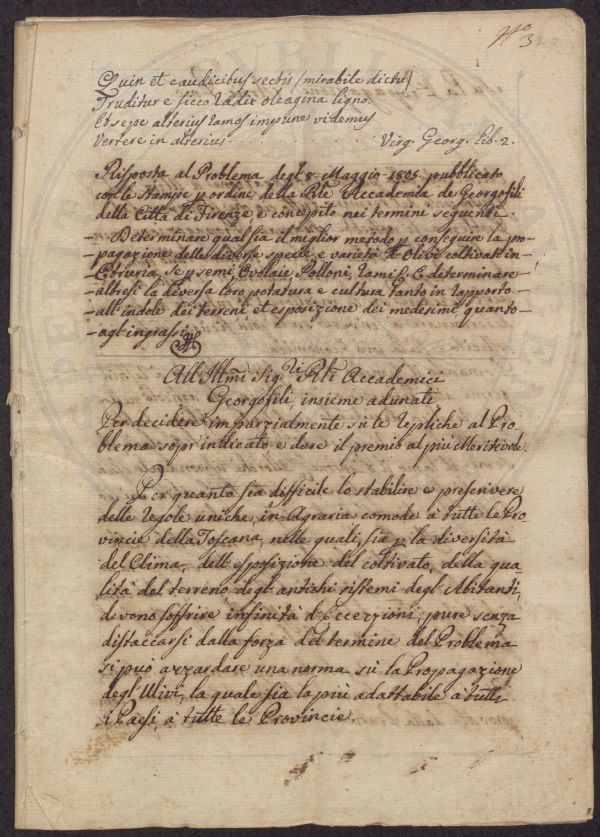 N° 3
Quin et caudicibus sectis (mirabile dictu)
Truditur e sicco radix oleagina ligno.
Et sepe alterius ramos impune videmus
Vertere in alterius . . . . . . . . . . Virg. Georg. lib. 2.
Risposta al Problema degl' 8 Maggio 1805. pubblicato
con le stampe p ordine della Rle Accademia de Georgofili
della Città di Firenze e concepito nei termini seguenti.
— Determinare qual sia il miglior metodo p conseguire la pro-
-pagazione delle diverse specie, e varietà d'Olivi coltivati in-
-Etruria, se p semi, Ovolaie, Polloni, rami &c. E determinare-
-altresì la diversa loro potatura e cultura tanto in rapporto-
-all' indole dei terreni, et esposizione dei medesimi, quanto-
-agl' ingrassi
All' Illmi Sigri Rli Accademici
Georgofili, insieme adunati
Per decidere imparzialmente sù le repliche al Pro-
blema sopr' indicato, e dare il premio al più Meritevole.
Per quanto sia difficile lo stabilire e prescrivere
delle regole uniche, in Agraria comode à tutte le Pro
vincie della Toscana, nelle quali, sia p la diversità
del Clima, dell' esposizione del coltivato, della qua
lità del terreno degl' antichi sistemi degl' Abitanti,
devono soffrire infinità d'Eccezzioni; pure senza
distaccarsi dalla forza del termine del Problema
si può azzardare una norma sù la Propagazione
degl' Ulivi, la quale sia la più adattabile à tutti
i Paesi, à tutte le Provincie.